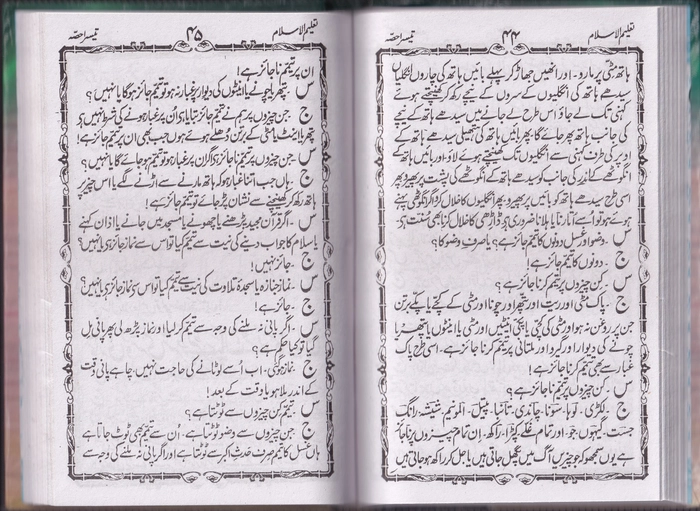 تعلیم الاسلام ۴۴ تیسرا حصّہ
ہاتھ مٹی پر مارو ۔ اور انھیں جھاڑ کر پہلے بائیں ہاتھ کی چاروں انگلیاں
سیدھے ہاتھ کی انگلیوں کے سروں کے نیچے رکھ کر کھینچتے ہوئے
کہنی تک لے جاؤ اس طرح لے جانے میں سیدھے ہاتھ کے نیچے
کی جانب ہاتھ پھر جائے گا پھر بائیں ہاتھ کی ہتھیلی سیدھے ہاتھ کے
اوپر کی طرف کہنی سے انگلیوں تک کھینچتے ہوئے لاؤ اور بائیں ہاتھ کے
انگوٹھے کے اندر کی جانب کو سیدھے ہاتھ کے انگوٹھے کی پشت پر پھیرو پھر
اسی طرح سیدھے ہاتھ کو بائیں پر پھیرو پھر انگلیوں کا خلال کرو اگر انگوٹھی پہنے
ہوئے ہو تو اُسے اُتارنا یا ہلانا ضروری ہے ڈاڑھی کا خلال کرنا بھی سُنّت ہے
س ۔ وضو اور غسل دونوں کا تیمم جائز ہے؟ یا صرف وضو کا؟
ج ۔ دونوں کا تیمّم جائز ہے!
س ۔ کِن چیزوں پر تیمّم کرنا جائز ہے؟
ج ۔ پاک مٹی اور ریت اور پتھر اور چونا اور مٹی کے کچّے یا پکّے برتن
جن پر روغن نہ ہو اور مٹی کی کچّی یا پکّی اینٹیں اور مٹی یا اینٹوں یا پتھر یا
چونے کی دیوار اور گیرو اور ملتانی پر تیمم کرنا جائز ہے ۔ اسی طرح پاک
غبار سے بھی تیمّم کرنا جائز ہے!
س ۔ کِن چیزوں پر تیمّم ناجائز ہے؟
ج ۔ لکڑی ۔ لوہا ۔ سونا ۔ چاندی ۔ تانبا ۔ پیتل ۔ المونیم ۔ شیشہ ۔ رانگ
جست ۔ گیہوں ۔ جَو ۔ اور تمام غلّے کپڑا ۔ راکھ ۔ اِن تمام چیزوں پر ناجائز
ہے یوں سمجھو کہ جو چیزیں آگ میں پگھل جاتی ہیں یا جل کر راکھ ہو جاتی ہیں
تعلیم الاسلام ۴۵ تیسرا حصّہ
ان پر تیمّم ناجائز ہے!
س ۔ پتھر یا چونے یا اینٹوں کی دیوار پر غبار نہ ہو تو تیمّم جائز ہوگا یا نہیں؟
ج ۔ جن چیزوں پر ہم نے تیمّم جائز بتایا ہے اُن پر غبار ہونے کی شرط نہیں ہے
پتھر یا اینٹ یا مٹی کے برتن دُھلے ہوئے ہوں جب بھی ان پر تیمّم جائز ہے!
س ۔ جن چیزوں پر تیمّم ناجائز ہے اگر ان پر غبار ہو تو تیمّم ہو جائے گا یا نہیں؟
ج ۔ ہاں جب اتنا غبار ہو کہ ہاتھ مارنے سے اُڑنے لگے یا اس چیز پر
ہاتھ رکھ کر کھینچنے سے نشان پڑ جائے تو تیمّم جائز ہے!
س ۔ اگر قرآن مجید پڑھنے یا چھونے یا مسجد میں جانے یا اذان کہنے
یا سلام کا جواب دینے کی نیت سے تیمم کیا تو اس سے نماز جائز ہے یا نہیں؟
ج ۔ جائز نہیں!
س ۔ نماز جنازہ یا سجدۂ تلاوت کی نیت سے تیمّم کیا تو اس سے نماز جائز ہے یا نہیں؟
ج ۔ جائز ہے!
س ۔ اگر پانی نہ ملنے کی وجہ سے تیمم کر لیا اور نماز پڑھ لی پھر پانی مل
گیا تو کیا حکم ہے؟
ج ۔ نماز ہوگئی ۔ اب اُسے لوٹانے کی حاجت نہیں ۔ چاہے پانی وقت
کے اندر ملا ہو یا وقت کے بعد!
س ۔ تیمّم کِن چیزوں سے ٹوٹتا ہے؟
ج ۔ جن چیزوں سے وضو ٹوٹتا ہے ۔ اُن سے تیمّم بھی ٹوٹ جاتا ہے
ہاں غسل کا تیمم صرف حدثِ اکبر سے ٹوٹتا ہے اور اگر پانی نہ ملنے کی وجہ سے